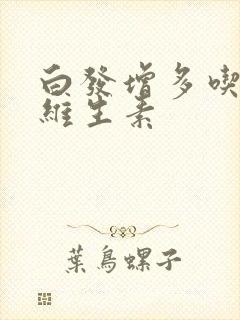 白發增多喫
維生素
葉鳥螺子